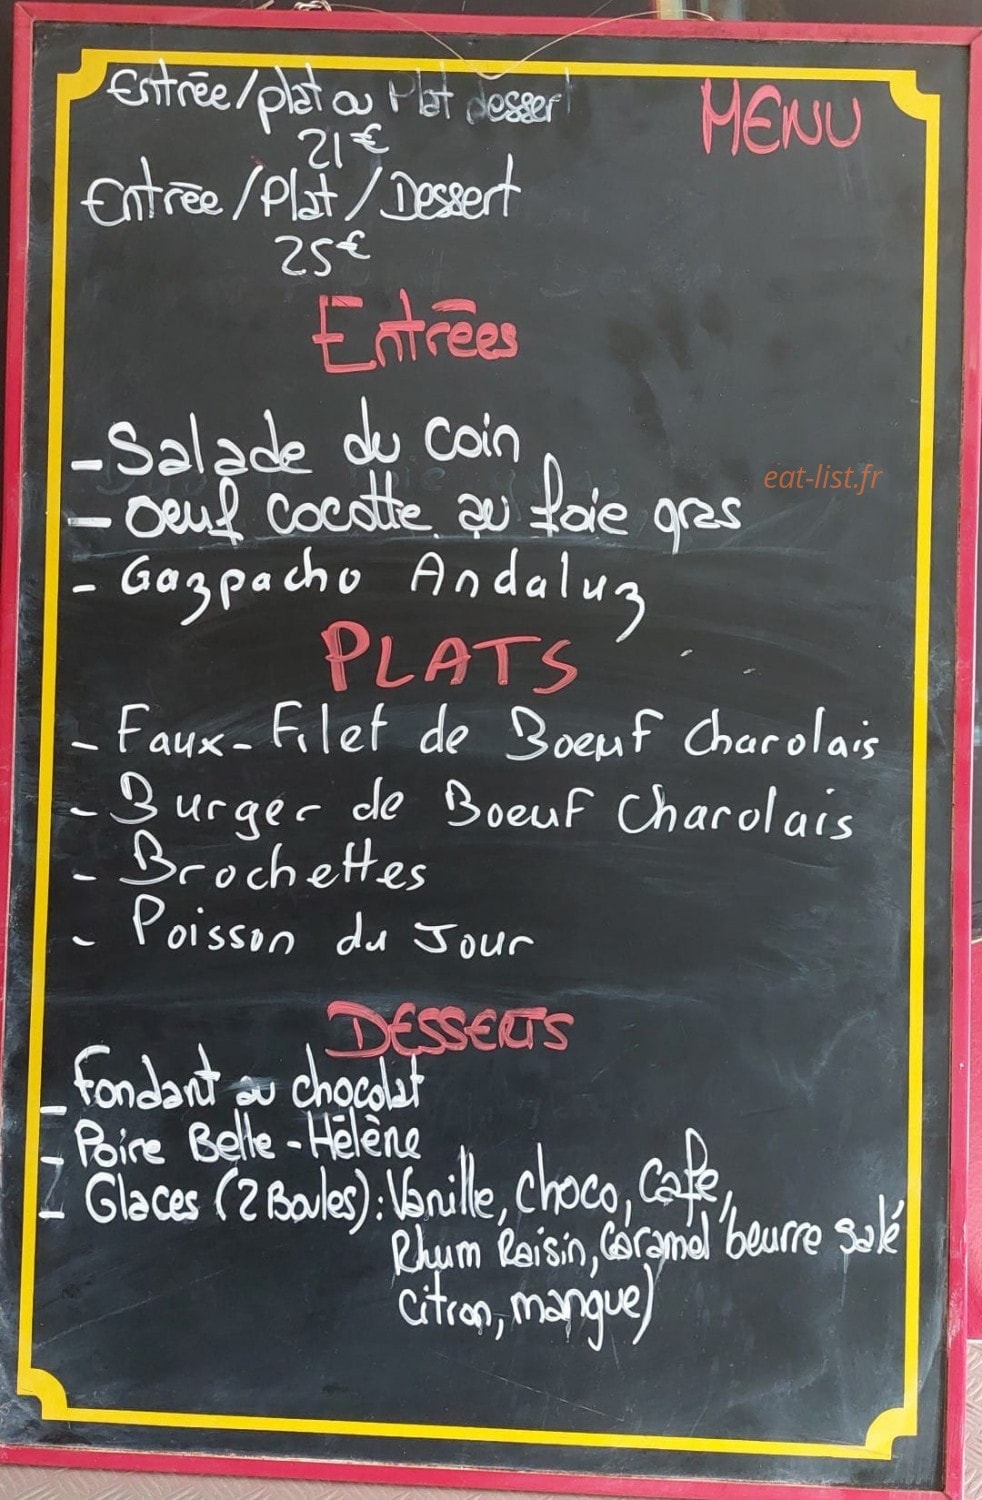 Entrée/plat ou Plat dessert
MENU
21€
Entrée/Plat/Dessert
25€
Entrées
- Salade du coin
eat-list.fr
- Oeuf cocotte au foie gras
- Gazpacho Andaluz
PLATS
- Faux-Filet de Boeuf Charolais
- Burger de Boeuf Charolais
- Brochettes
- Poisson du Jour
DESSERTS
- Fondant au chocolat
- Poire Belle-Hélène
- Glaces (2 Boules): Vanille, choco, Café,
Rhum Raisin, Caramel beurre salé
citron, mangue)